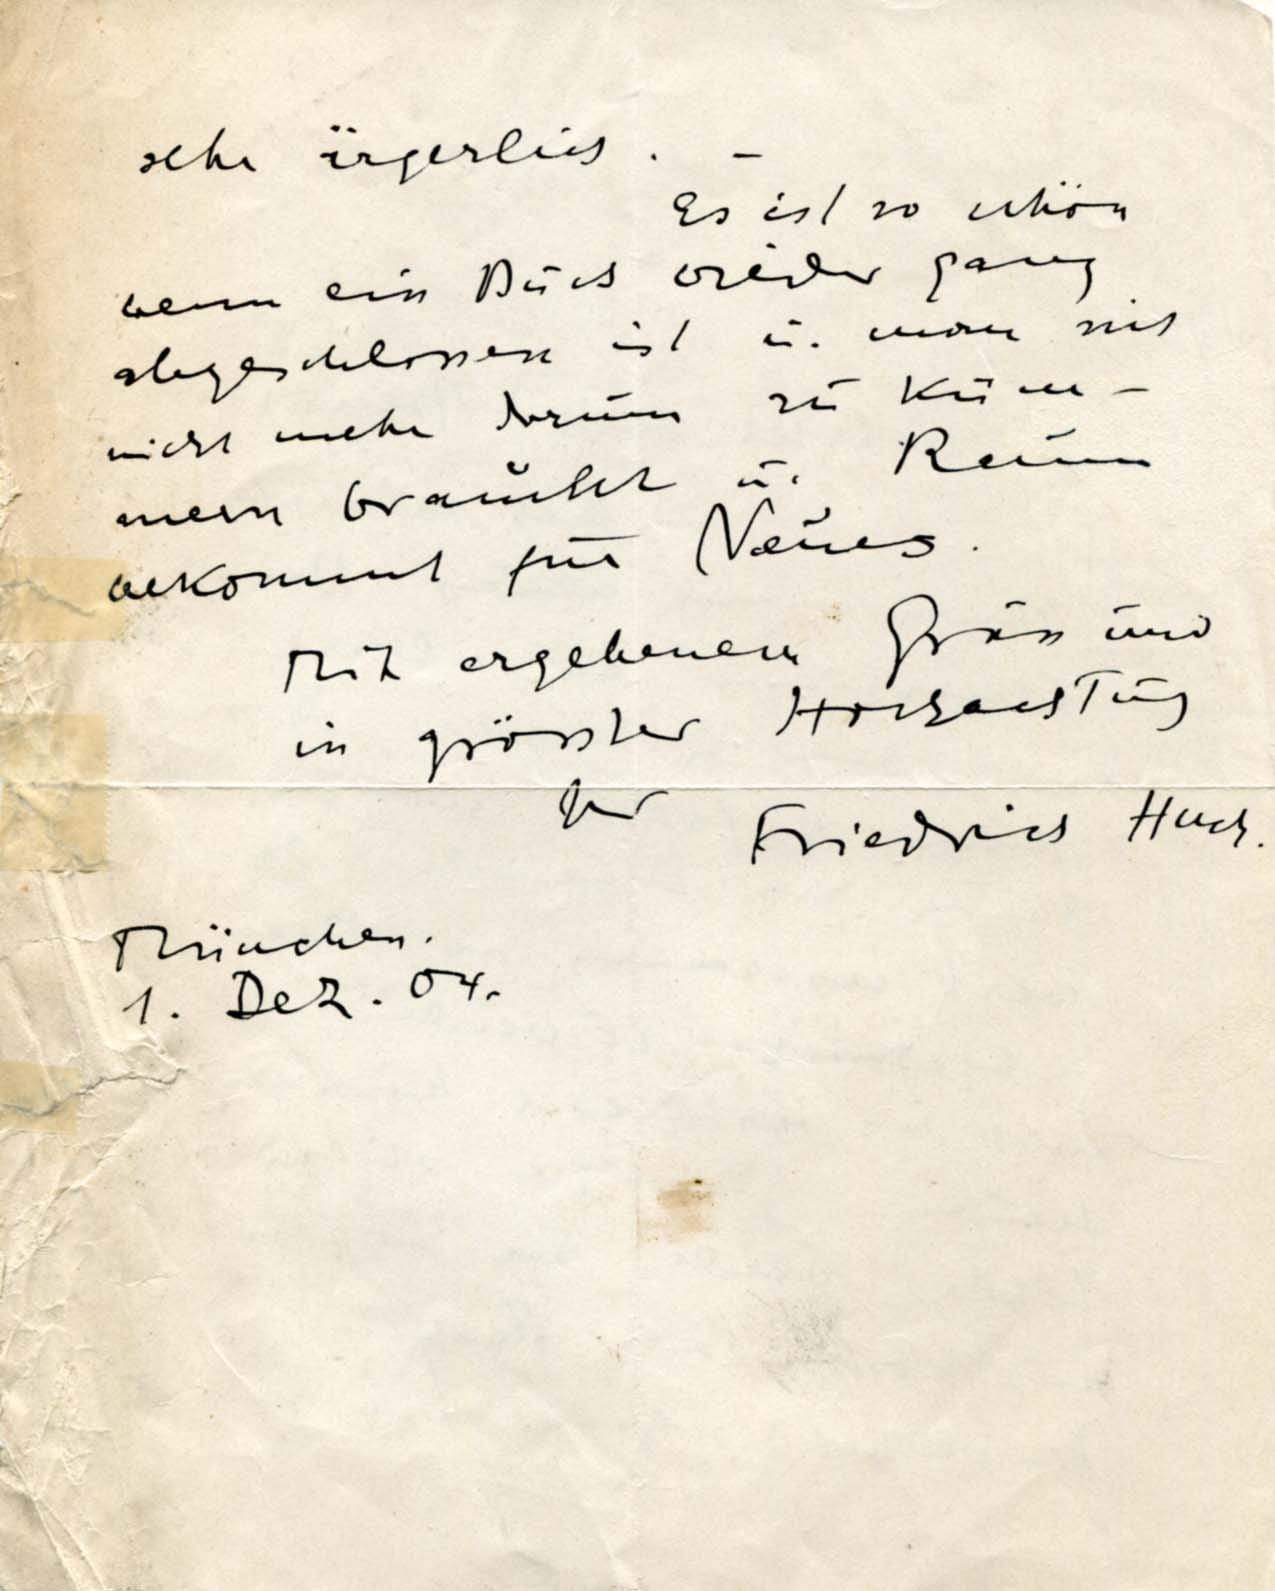 sehr ärgerlich. –
Es ist so schön
wenn ein Buch wieder ganz
abgeschlossen ist u. man sich
nicht mehr darum zu küm-
mern braucht u. Raum
bekommt für Neues.
Mit ergebenem Gruss und
in grösster Hochachtung
Ihr
Friedrich Huch.
München.
1. Dez. 04.